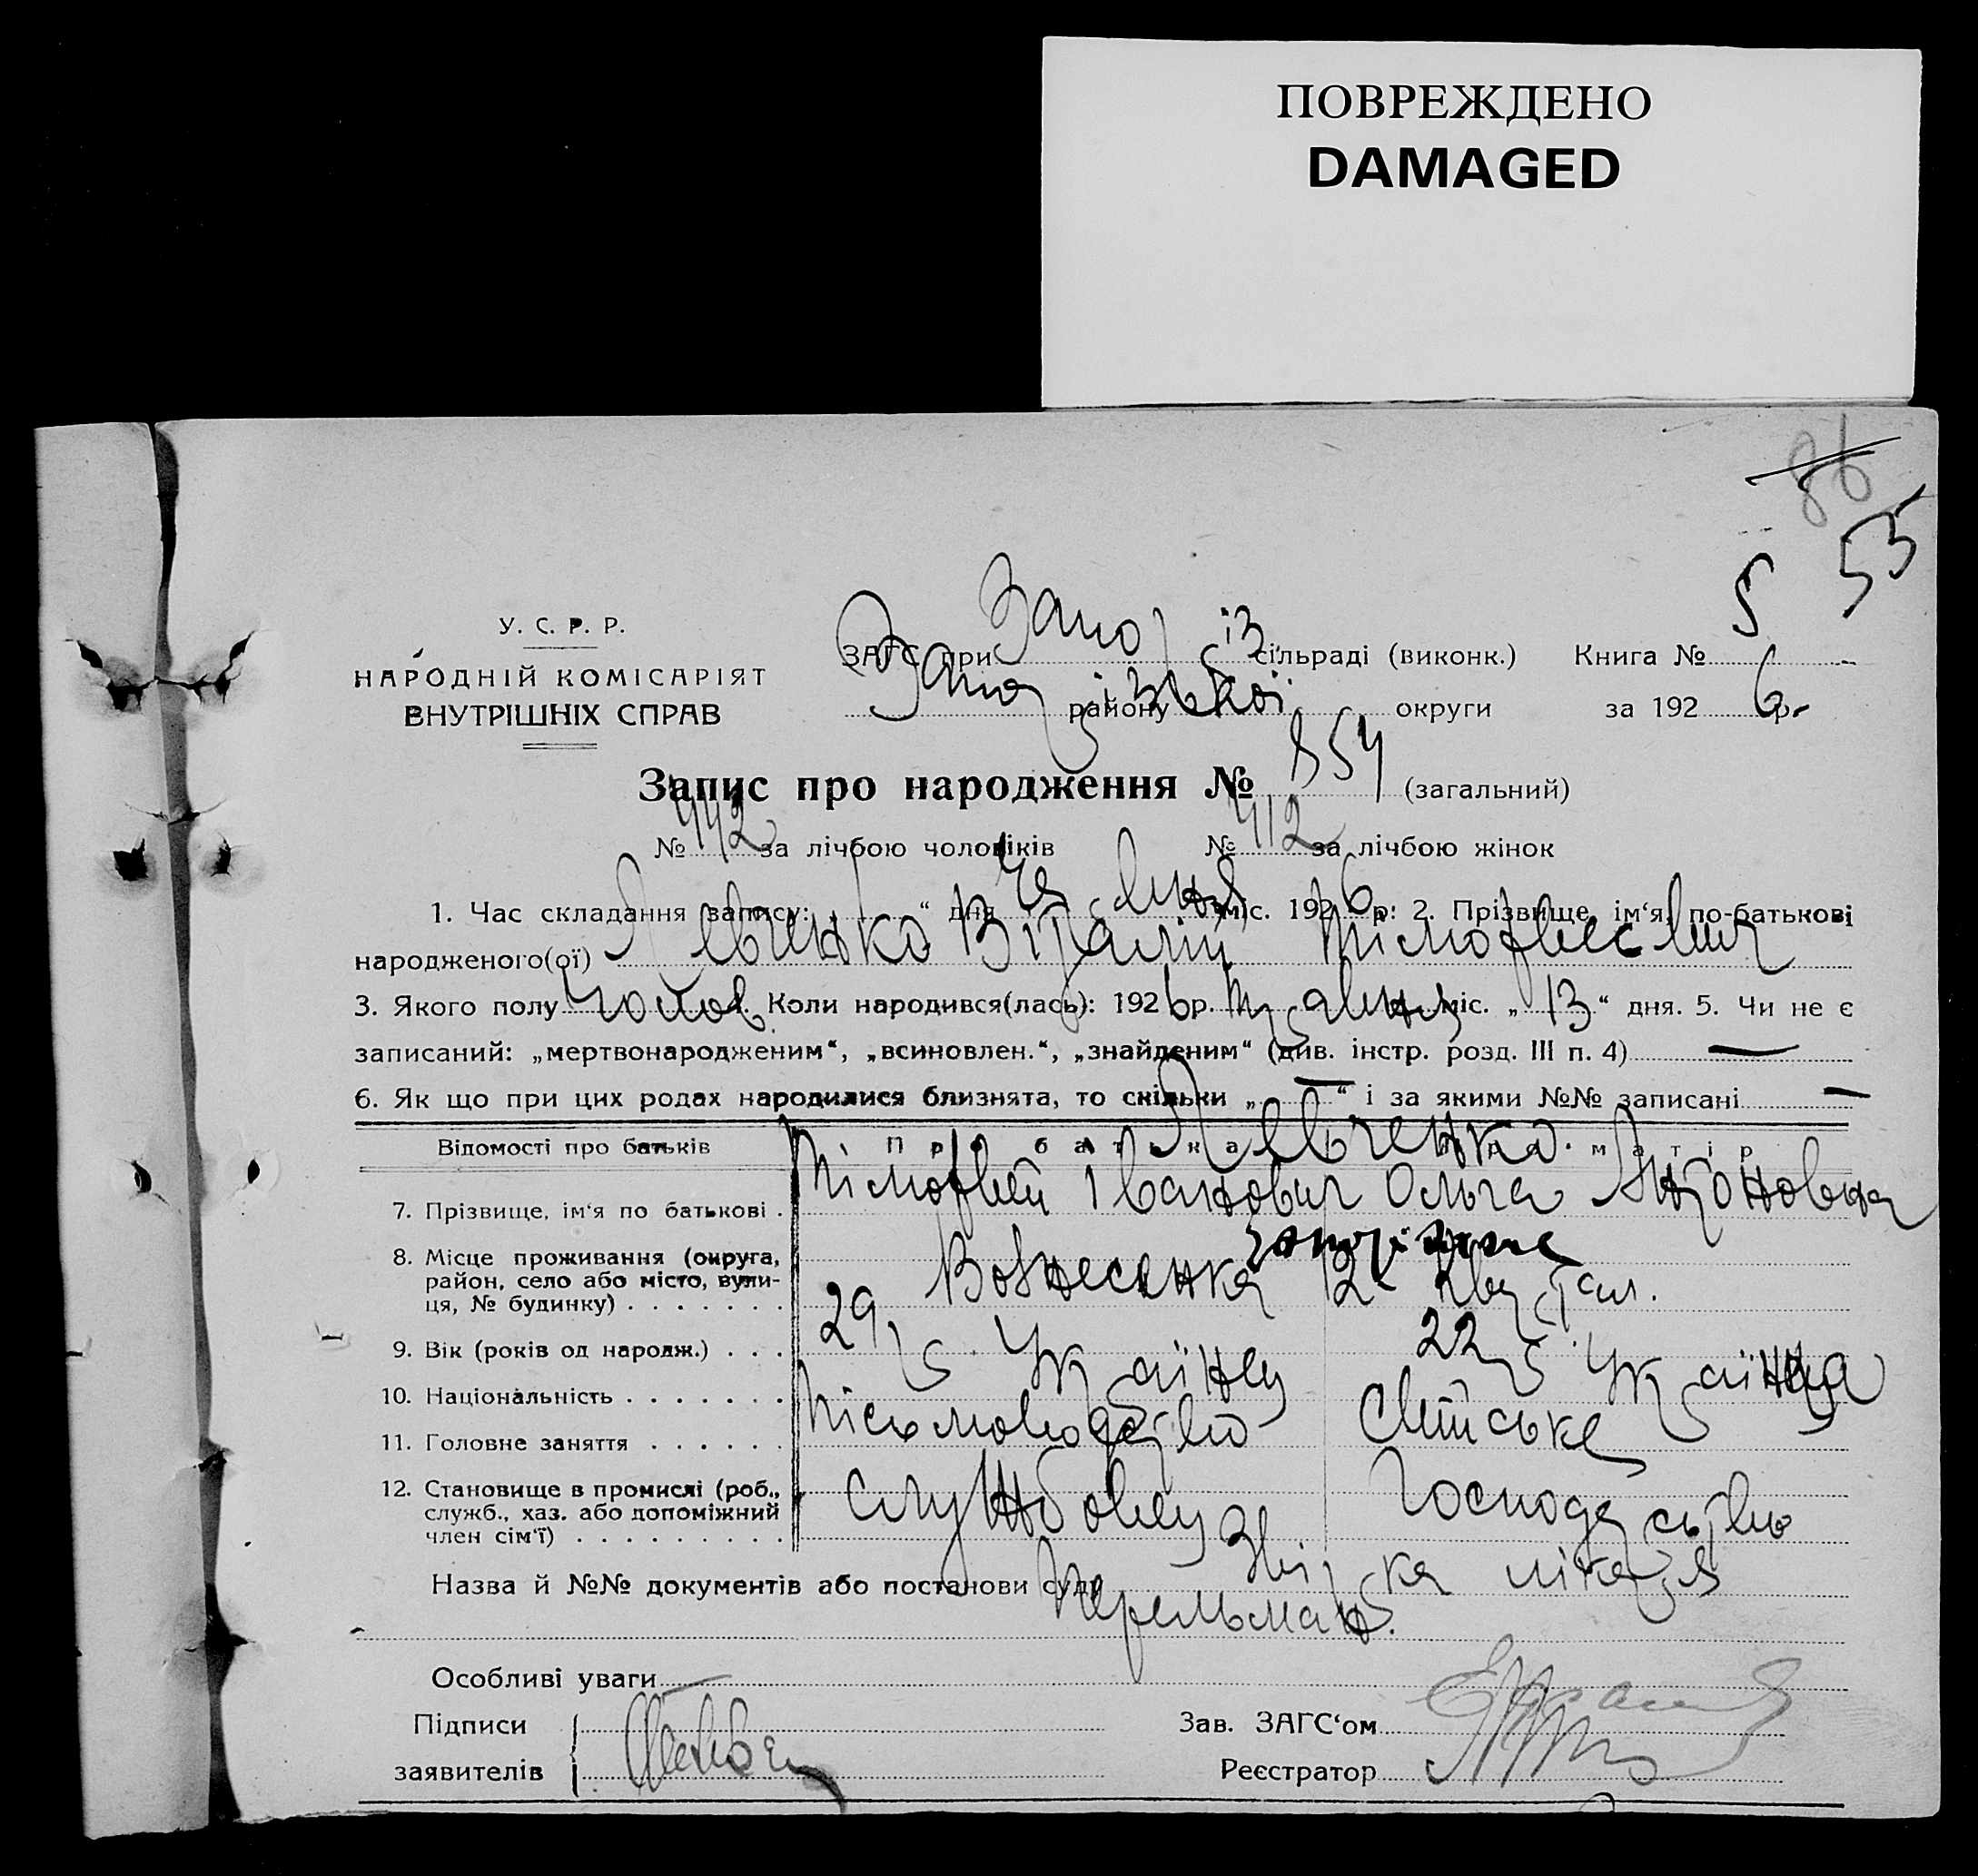 ПОВРЕЖДЕНО
DAMAGED
86
55
У. С. Р. Р.
НАРОДНІЙ КОМІСАРІЯТ
ВНУТРІШНІХ СПРАВ
ЗАГС при Запоріз. сільраді (виконк.) Книга № 5
Запорізької району округи за 1926 р.
Запис про народження № 854 (загальний)
№ 442 за лічбою чоловіків № 412 за лічбою жінок
1. Час складання запису: “ дня міс. 1926 р: 2. Прізвище, ім‘я, по-батькові
народженого(ої) Левченко Віталій Тімофієєвич
3. Якого полу чолов. Коли народився(лась): 1926 р. травня міс. „ 13 “ дня. 5. Чи не є
записаний: „мертвонародженим“, „всиновлен.“, „знайденим“ (див. інстр. розд. III п. 4) —
6. Як що при цих родах народилися близнята, то скільки „ — “ і за якими №№ записані —
Відомості про батьків Про батька Левченко. матір
7. Прізвище, ім‘я по батькові . Тімофій Іванович Ольга Антоновна
8. Місце проживання (округа, район, село або місто, вулиця, № будинку) . . . . . . . Запоріжжє Вознесенка 12 квартал.
9. Вік (років од народж.) . . . 29 р. 22 р.
10. Національність . . . . . . . Українец Українка
11. Головне заняття . . . . . . Пісьмоводство Сільське
12. Становище в промислі (роб., служб., хаз. або допоміжний член сім‘ї) . . . . . . . . . Службовец господарство
Назва й №№ документів або постанови суду Звірка лікаря
Перельман.
Особливі уваги —
Підписи
заявителів
Зав. ЗАГС‘ом
Реєстратор